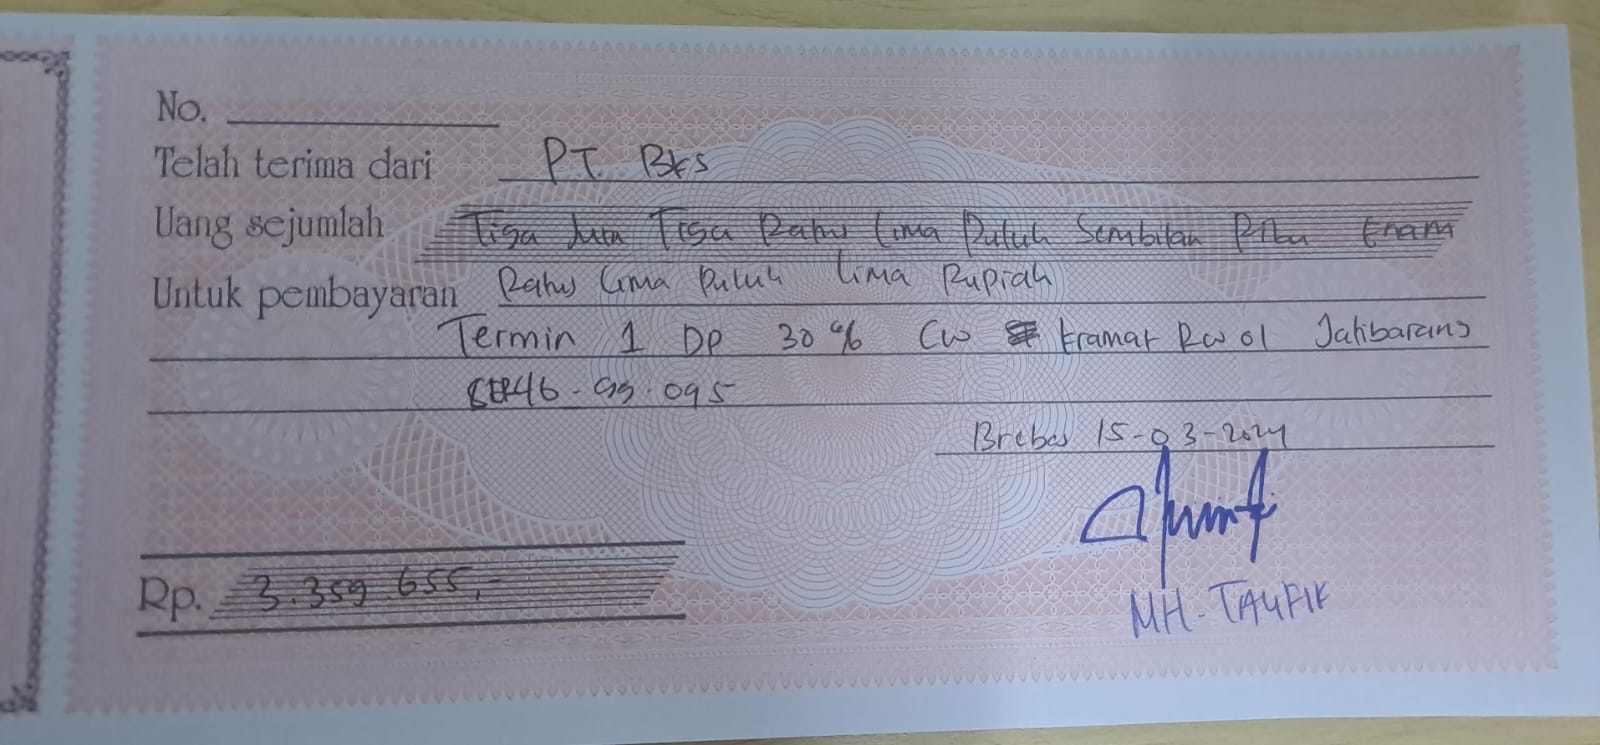 No.
Telah terima dari PT. BKS
Uang sejumlah Tiga Juta Tiga Ratus Lima Puluh Sembilan Ribu Enam
Untuk pembayaran Ratus Lima Puluh Lima Rupiah
Termin 1 DP 30% CW Kramat Rw 01 Jatibarang
46-99.095
Brebes 15-03-2024
Rp. 3.359.655,-
MH-TAUFIK